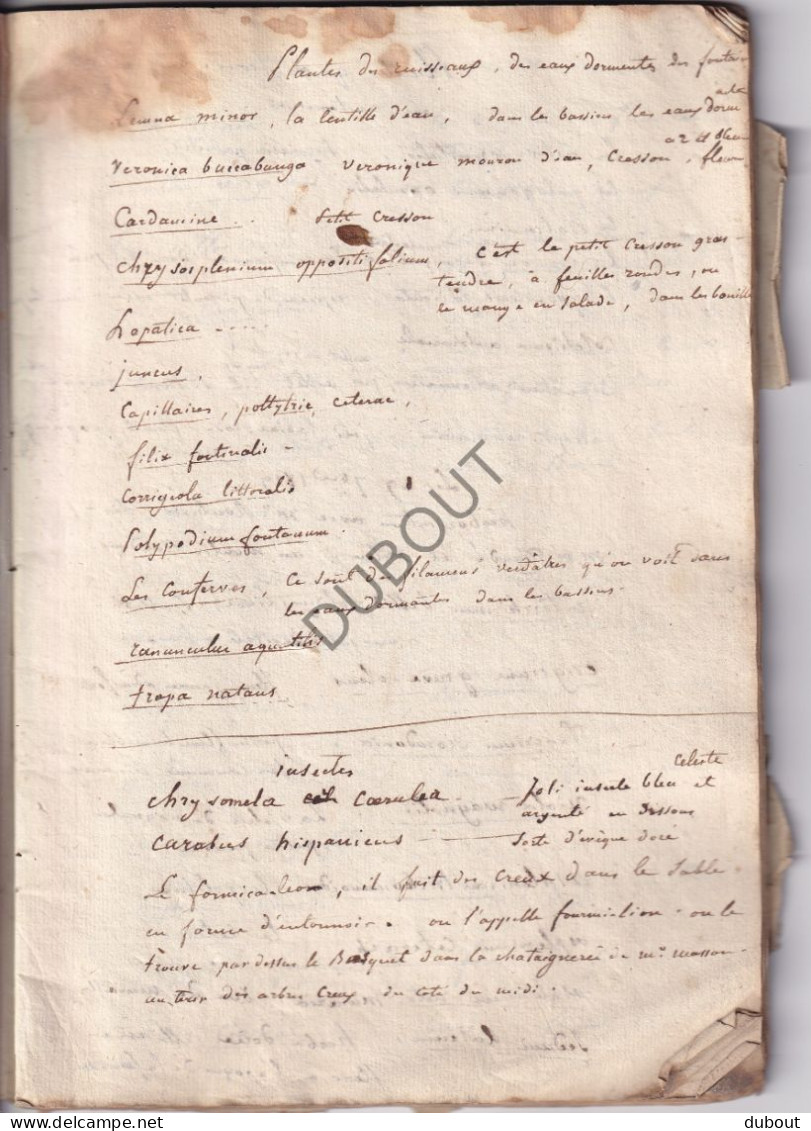 Plantes des ruisseaux, des eaux dormentes des fontai
Lemna minor, la lentille d'eau, dans les bassins les eaux dorm
Veronica buccabunga veronique mouron d'eau, Cresson, fleur
a 2 et bleu
Cardamine .. Petit Cresson
Chrysosplenium oppositifolium, c'est le petit Cresson gras-
tendre, à feuilles rondes, on
le mange en salade, dans les bouille
hepatica ....
juncus,
Capillaires, polytric, ceterac,
filix fontinalis -
Corrigiola littoralis
Polypodium fontanum.
Les Conferves, Ce sont des filamens verdâtres qu'on voit dans
les eaux dormantes dans les bassins.
ranunculus aquatilis
trapa natans
insectes
celeste
chrysomela coerulea - Joli insecte bleu et
argenté en dessous
carabus hispanicus - Sorte d'évêque doré
Le formicaleon, il fait des creux dans le sable
en forme d'entonnoir. on l'appelle fourmi-lion. on le
trouve par dessus le Bosquet dans la chataigneree de mr. masson
des arbres creux, du coté du midi.
DUBOUT
delcampe.net
dubout